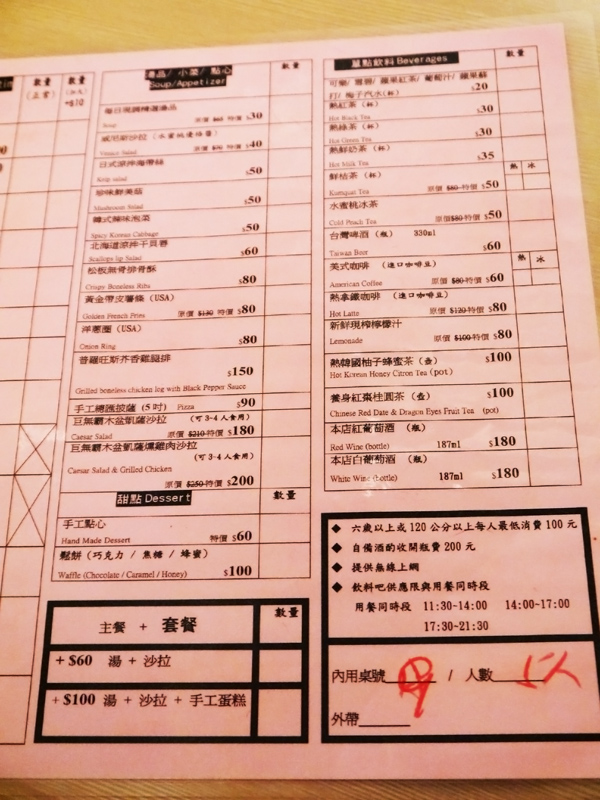 數量
(正常)
數量
+$10
湯品/ 小菜/ 點心
Soup/Appetizer
數量
每日現調精選湯品
Soup 原價 $65 特價 $30
威尼斯沙拉 (水蜜桃優格醬)
Venice Salad 原價 $70 特價 $40
日式涼拌海帶絲
Kelp salad $50
珍味鮮美菇
Mushroom Salad $50
韓式辣味泡菜
Spicy Korean Cabbage $50
北海道涼拌干貝唇
Scallops lip Salad $60
松板無骨排骨酥
Crispy Boneless Ribs $80
黃金帶皮薯條 (USA)
Golden French Fries 原價 $130 特價 $80
洋蔥圈 (USA)
Onion Ring $80
普羅旺斯芥香雞腿排
$150
Grilled boneless chicken leg with Black Pepper Sauce
手工總匯披薩 (5 吋) Pizza $90
巨無霸木盆凱薩沙拉 (可 3-4 人食用)
Caesar Salad 原價 $210 特價 $180
巨無霸木盆凱薩燻雞肉沙拉
(可 3-4 人食用)
Caesar Salad & Grilled Chicken
原價 $250 特價 $200
甜點 Dessert
數量
手工點心
Hand Made Dessert 特價 $60
鬆餅 (巧克力 / 焦糖 / 蜂蜜)
Waffle (Chocolate / Caramel / Honey) $100
主餐 + 套餐
數量
+ $60 湯 + 沙拉
+ $100 湯 + 沙拉 + 手工蛋糕
單點飲料 Beverages
數量
可樂/ 雪碧/ 蘋果紅茶/ 葡萄汁/ 蘋果蘇
打/ 梅子汽水(杯) $20
熱紅茶 (杯)
Hot Black Tea $30
熱綠茶 (杯)
Hot Green Tea $30
熱鮮奶茶 (杯)
Hot Milk Tea $35
鮮桔茶 (杯) 熱 冰
Kumquat Tea 原價 $80 特價 $50
水蜜桃冰茶
Cold Peach Tea 原價$80 特價 $50
台灣啤酒 (瓶) 330ml
Taiwan Beer $60
美式咖啡 (進口咖啡豆) 熱 冰
American Coffee 原價 $80 特價 $60
熱拿鐵咖啡 (進口咖啡豆)
Hot Latte 原價 $120 特價 $80
新鮮現榨檸檬汁
Lemonade 原價 $100 特價 $80
熱韓國柚子蜂蜜茶 (壺) $100
Hot Korean Honey Citron Tea (pot)
養身紅棗桂圓茶 (壺) $100
Chinese Red Date & Dragon Eyes Fruit Tea (pot)
本店紅葡萄酒 (瓶)
Red Wine (bottle) 187ml $180
本店白葡萄酒 (瓶)
White Wine (bottle) 187ml $180
◆ 六歲以上或 120 公分以上每人最低消費 100 元
◆ 自備酒酌收開瓶費 200 元
◆ 提供無線上網
◆ 飲料吧供應限與用餐同時段
用餐同時段 11:30~14:00 14:00~17:00
17:30~21:30
內用桌號 / 人數 5人
外帶